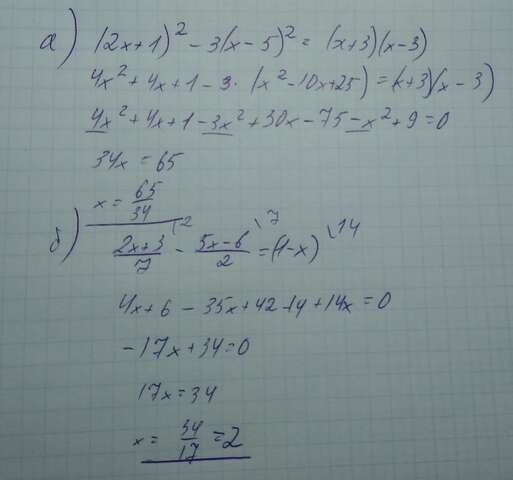 а) (2x+1)² - 3(x-5)² = (x+3)(x-3)
4x² + 4x + 1 - 3 · (x² - 10x + 25) = (x+3)(x-3)
4x² + 4x + 1 - 3x² + 30x - 75 - x² + 9 = 0
34x = 65
x = 65/34
б) (2x+3)/7 \2 - (5x-6)/2 \7 = (1-x) \14
4x + 6 - 35x + 42 - 14 + 14x = 0
-17x + 34 = 0
17x = 34
x = 34/17 = 2